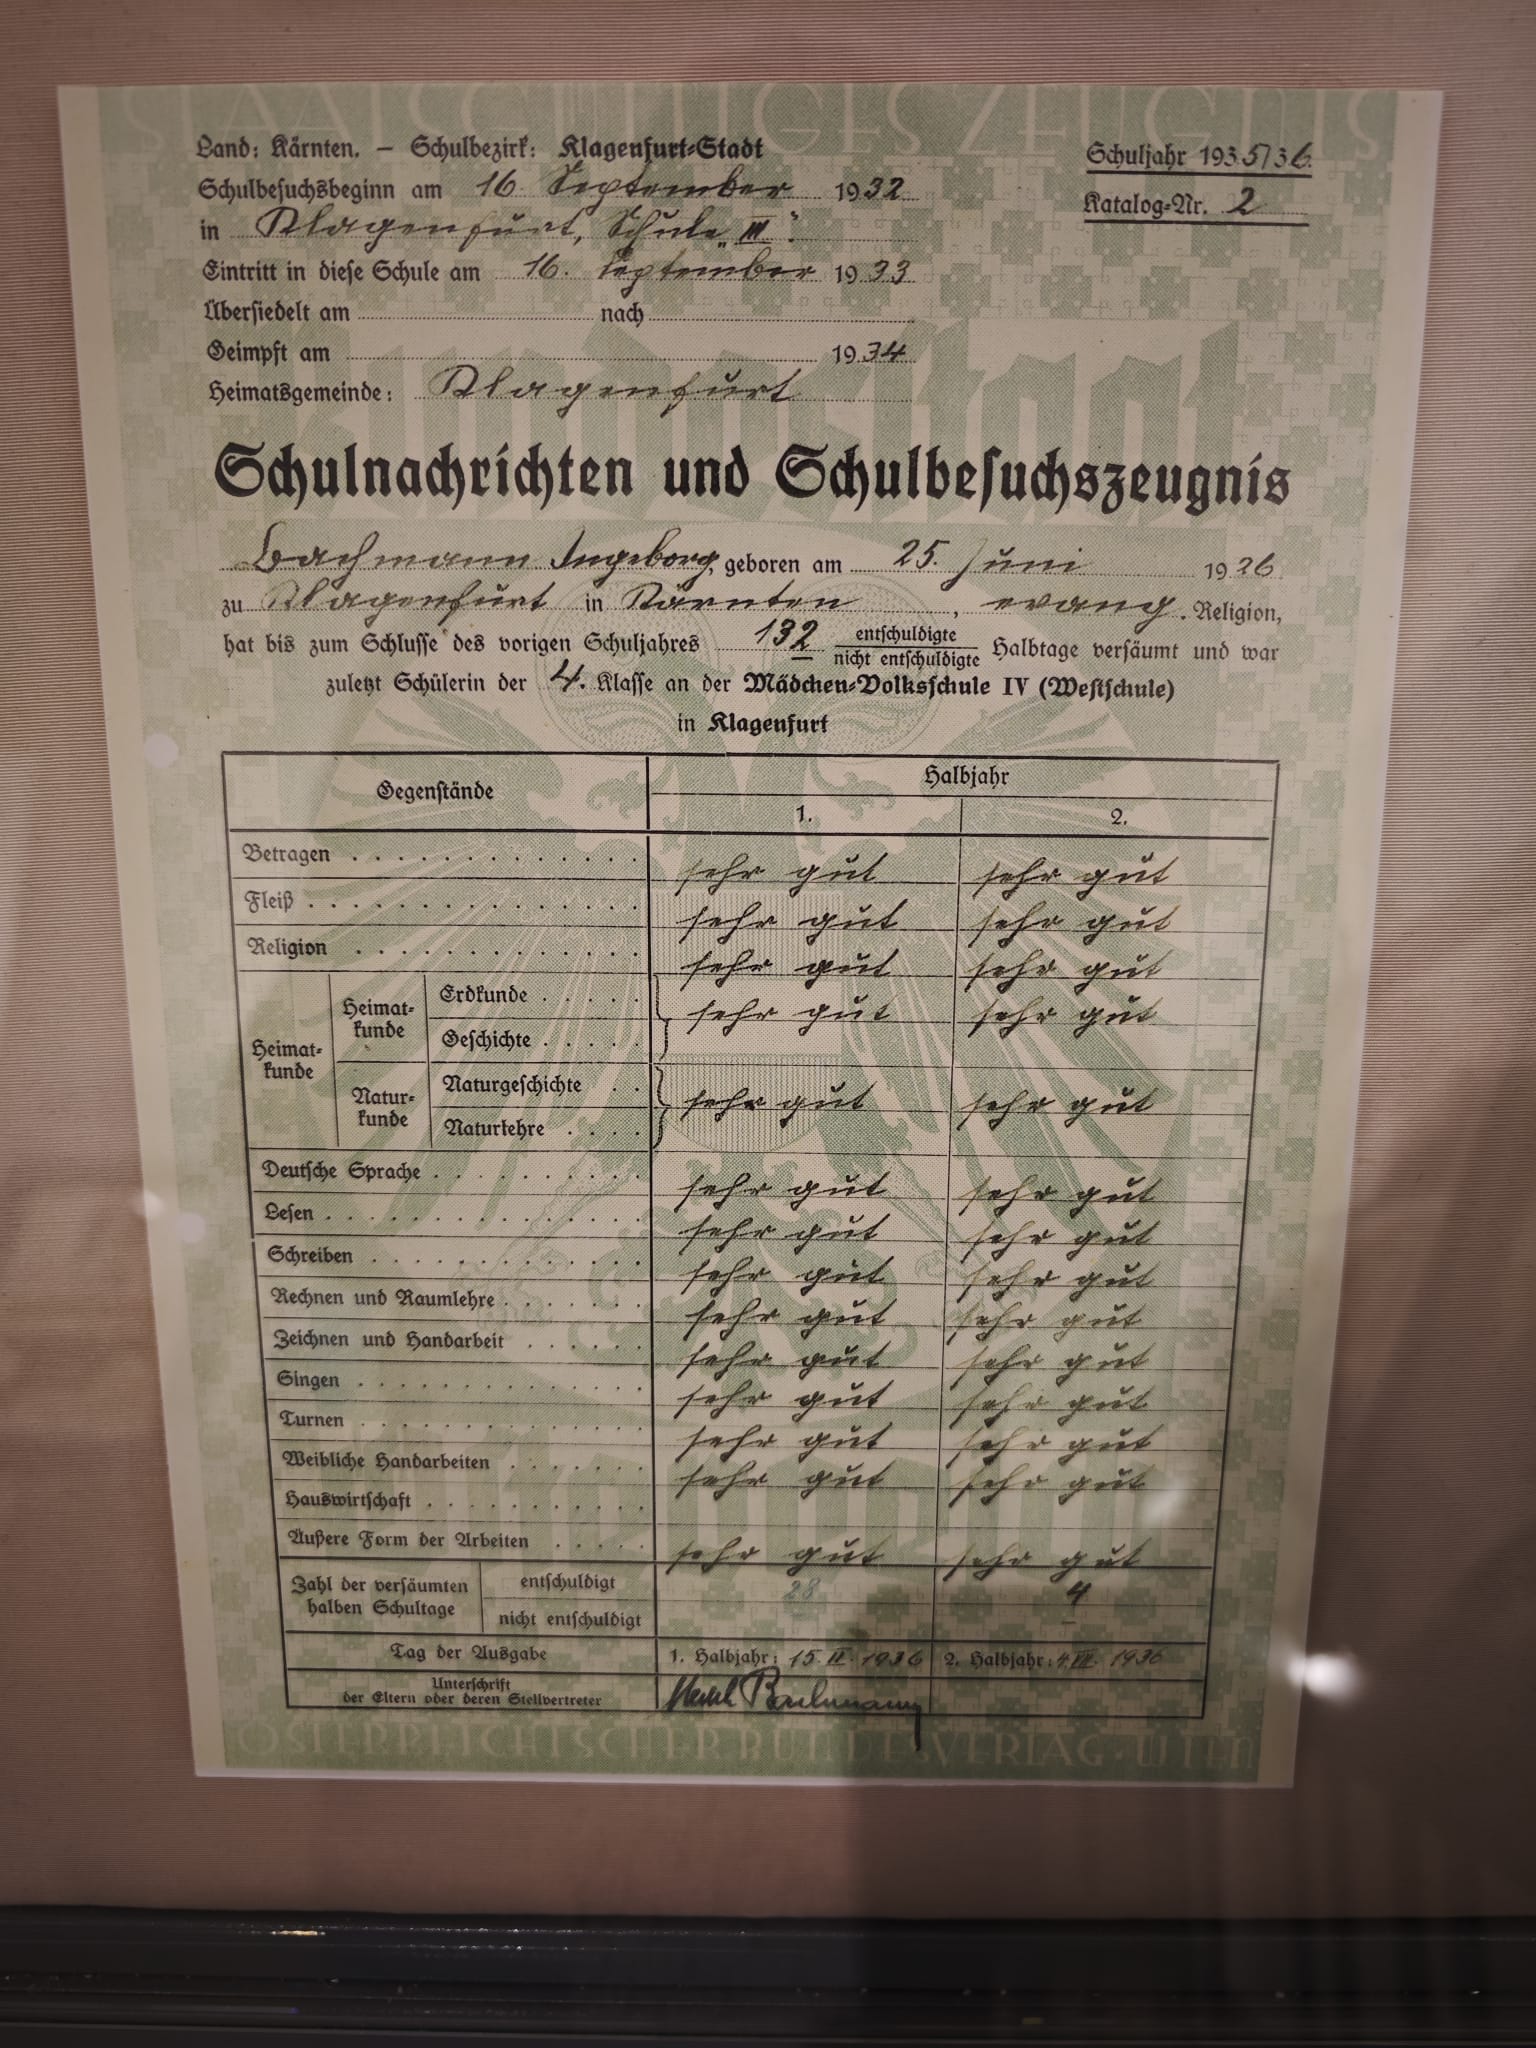 STAATSGÜLTIGES ZEUGNIS
Land: Kärnten. – Schulbezirk: Klagenfurt-Stadt
Schuljahr 1935/36.
Schulbesuchsbeginn am 16. September 1932
Katalog-Nr. 2
in Klagenfurt, Schule „III“.
Eintritt in diese Schule am 16. September 1933
Übersiedelt am nach
Geimpft am 1934
Heimatsgemeinde: Klagenfurt
Schulnachrichten und Schulbesuchszeugnis
Bachmann Ingeborg, geboren am 25. Juni 1926
zu Klagenfurt in Kärnten, evang. Religion,
hat bis zum Schlusse des vorigen Schuljahres 132 entschuldigte Halbtage versäumt und war
nicht entschuldigte
zuletzt Schülerin der 4. Klasse an der Mädchen-Volksschule IV (Westschule)
in Klagenfurt
Gegenstände Halbjahr
1. 2.
Betragen sehr gut sehr gut
Fleiß sehr gut sehr gut
Religion sehr gut sehr gut
Heimatkunde Heimatkunde Erdkunde sehr gut sehr gut
Geschichte
Naturkunde Naturgeschichte sehr gut sehr gut
Naturlehre
Deutsche Sprache sehr gut sehr gut
Lesen sehr gut sehr gut
Schreiben sehr gut sehr gut
Rechnen und Raumlehre sehr gut sehr gut
Zeichnen und Handarbeit sehr gut sehr gut
Singen sehr gut sehr gut
Turnen sehr gut sehr gut
Weibliche Handarbeiten sehr gut sehr gut
Hauswirtschaft
Äußere Form der Arbeiten sehr gut sehr gut
Zahl der versäumten halben Schultage entschuldigt 28 4
nicht entschuldigt –
Tag der Ausgabe 1. Halbjahr: 15. II. 1936 2. Halbjahr: 4. VII. 1936
Unterschrift
der Eltern oder deren Stellvertreter Bachmann
ÖSTERREICHISCHER BUNDESVERLAG · WIEN